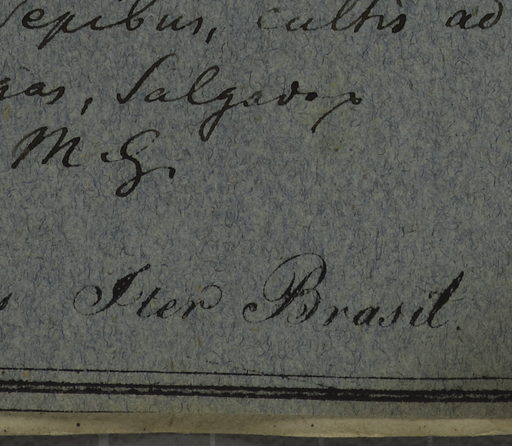 Sepibus, cultis ad
gas, Salgado
M. G.
s Iter Brasil.